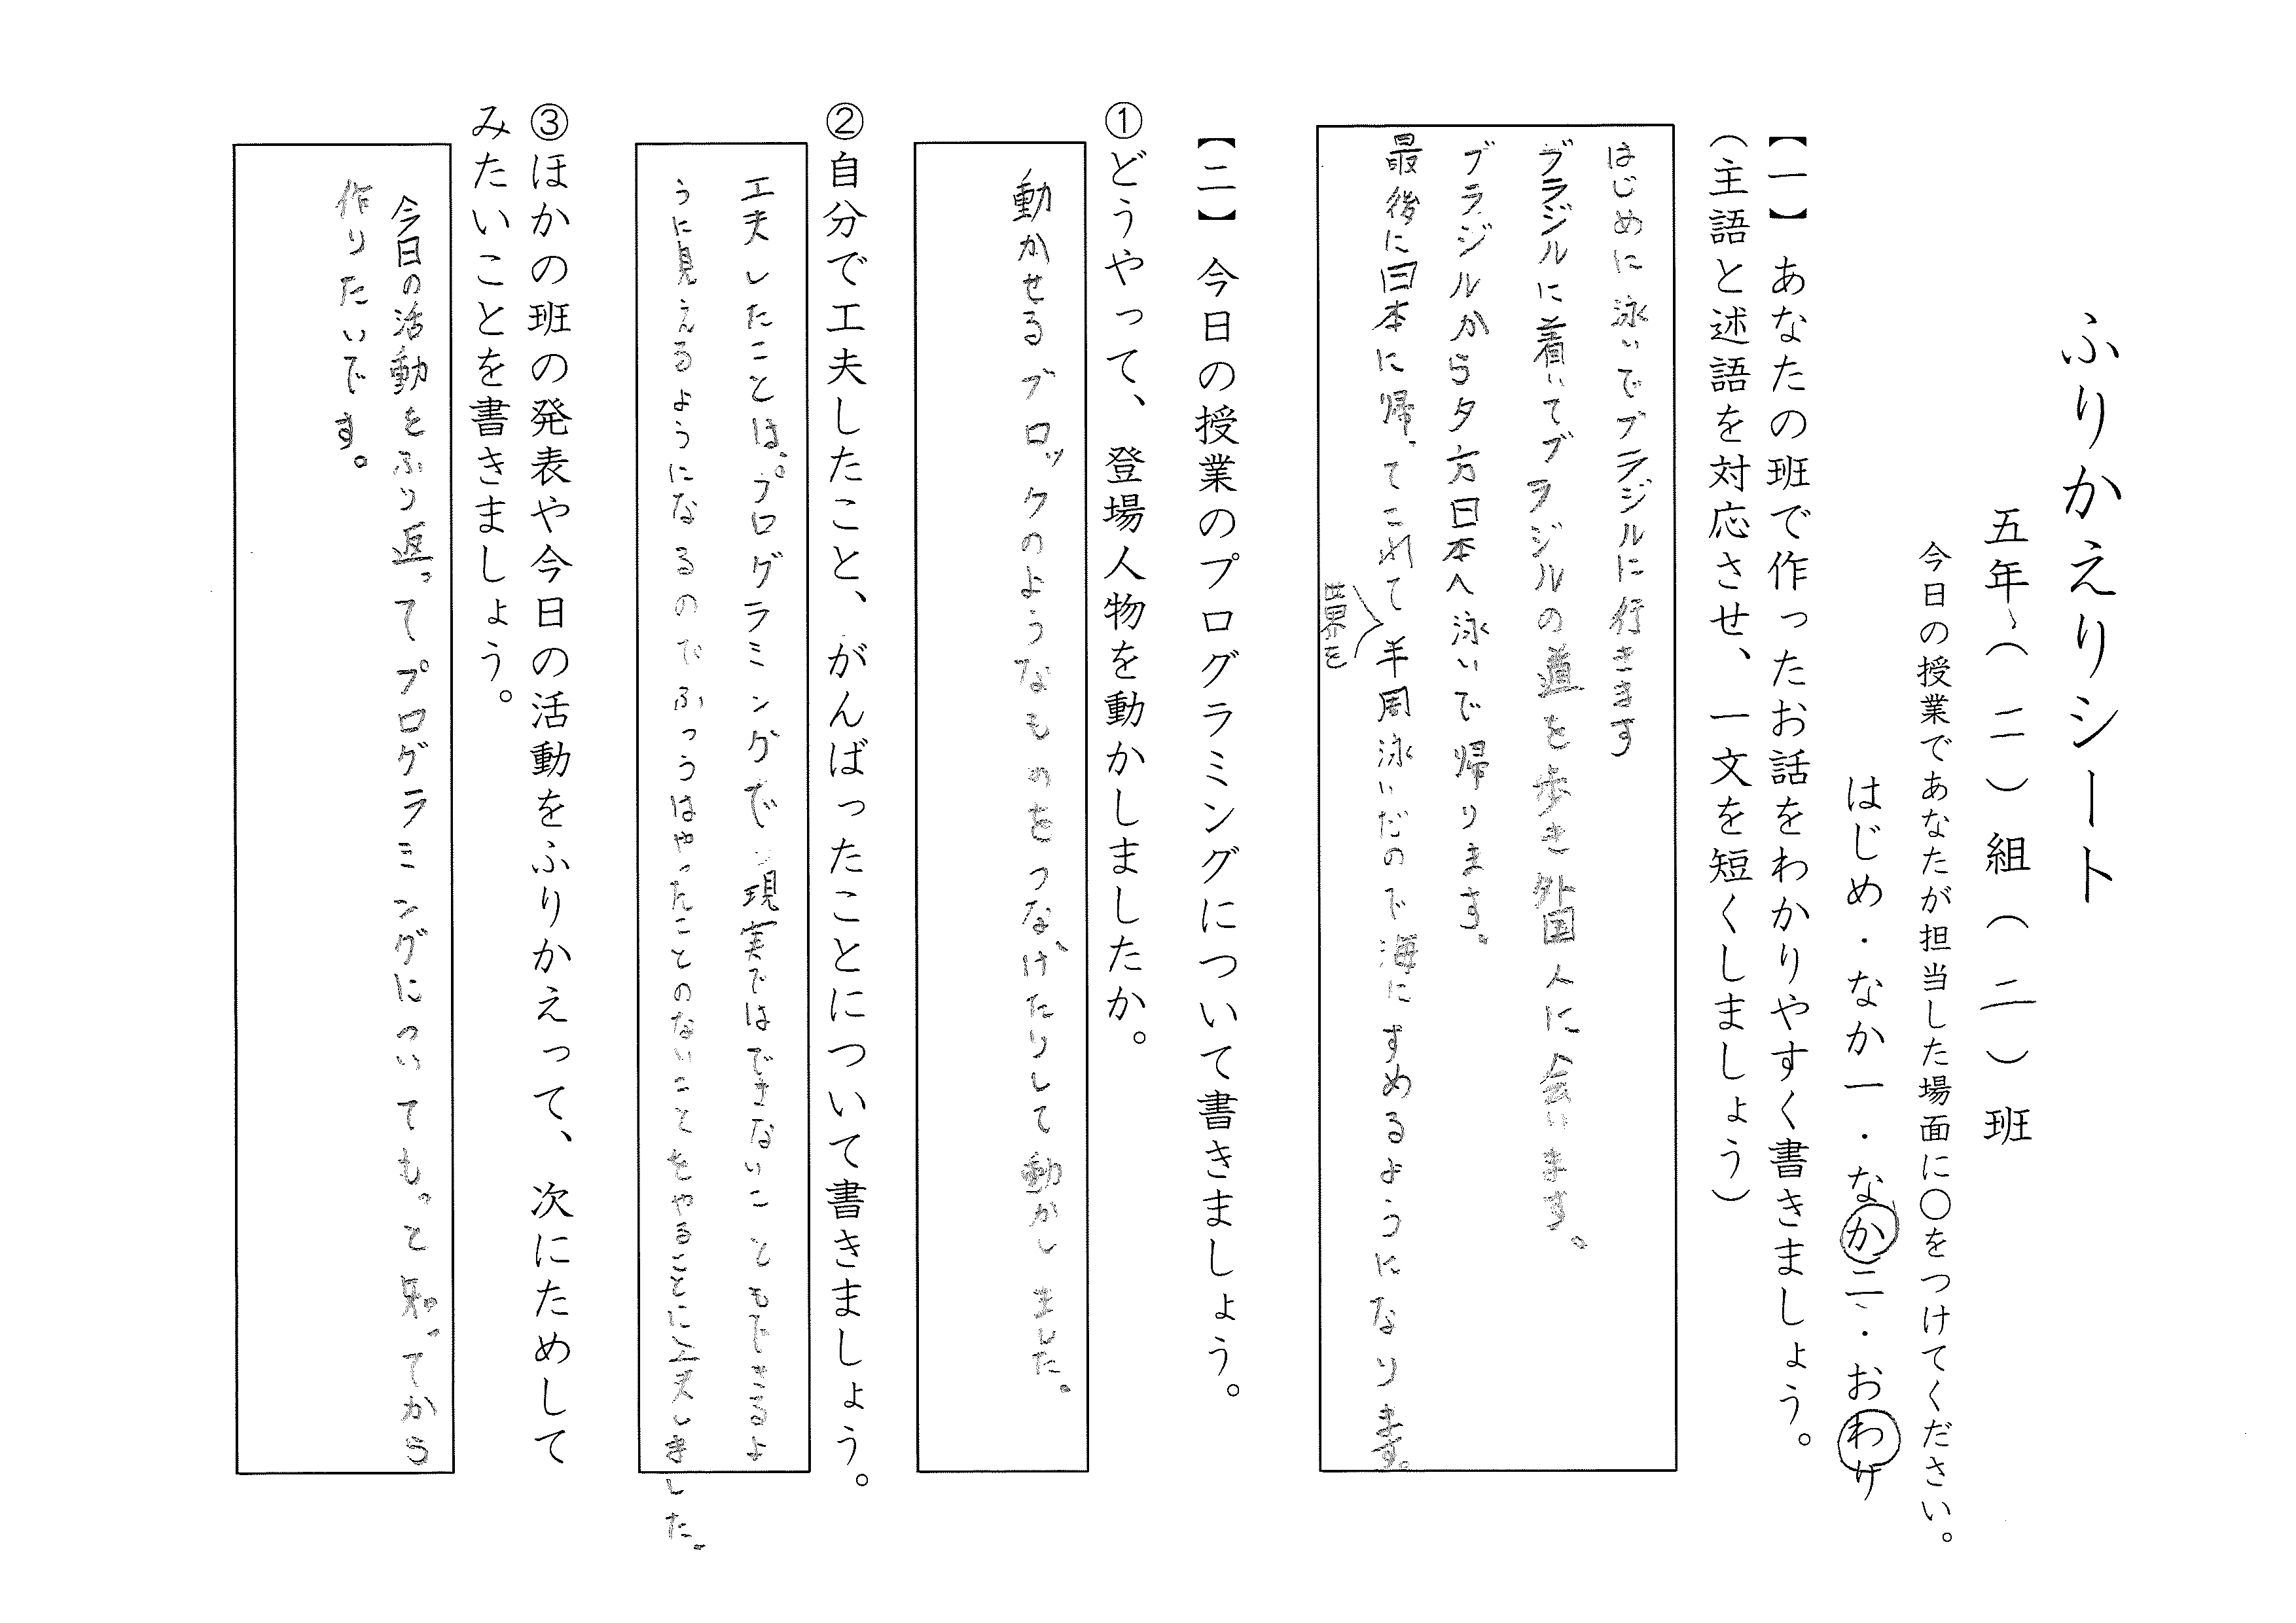 ふりかえりシート
五年（二）組（二）班
今日の授業であなたが担当した場面に○をつけてください。
はじめ・なか一・なか二・おわり
【一】あなたの班で作ったお話をわかりやすく書きましょう。
（主語と述語を対応させ、一文を短くしましょう）
はじめに泳いでブラジルに行きます
ブラジルに着いてブラジルの道を歩き外国人に会います。
ブラジルから夕方日本へ泳いで帰ります。
最後に日本に帰ってこれて半周泳いだので海にすめるようになります。
世界を
【二】今日の授業のプログラミングについて書きましょう。
①どうやって、登場人物を動かしましたか。
動かせるブロックのようなものをつなげたりして動かしました。
②自分で工夫したこと、がんばったことについて書きましょう。
工夫したことは、プログラミングで現実ではできないこともできるよ
うに見えるようになるのでふつうはやったことのないことをやることに工夫しました。
③ほかの班の発表や今日の活動をふりかえって、次にためして
みたいことを書きましょう。
今日の活動をふり返ってプログラミングについてもっと知ってから
作りたいです。